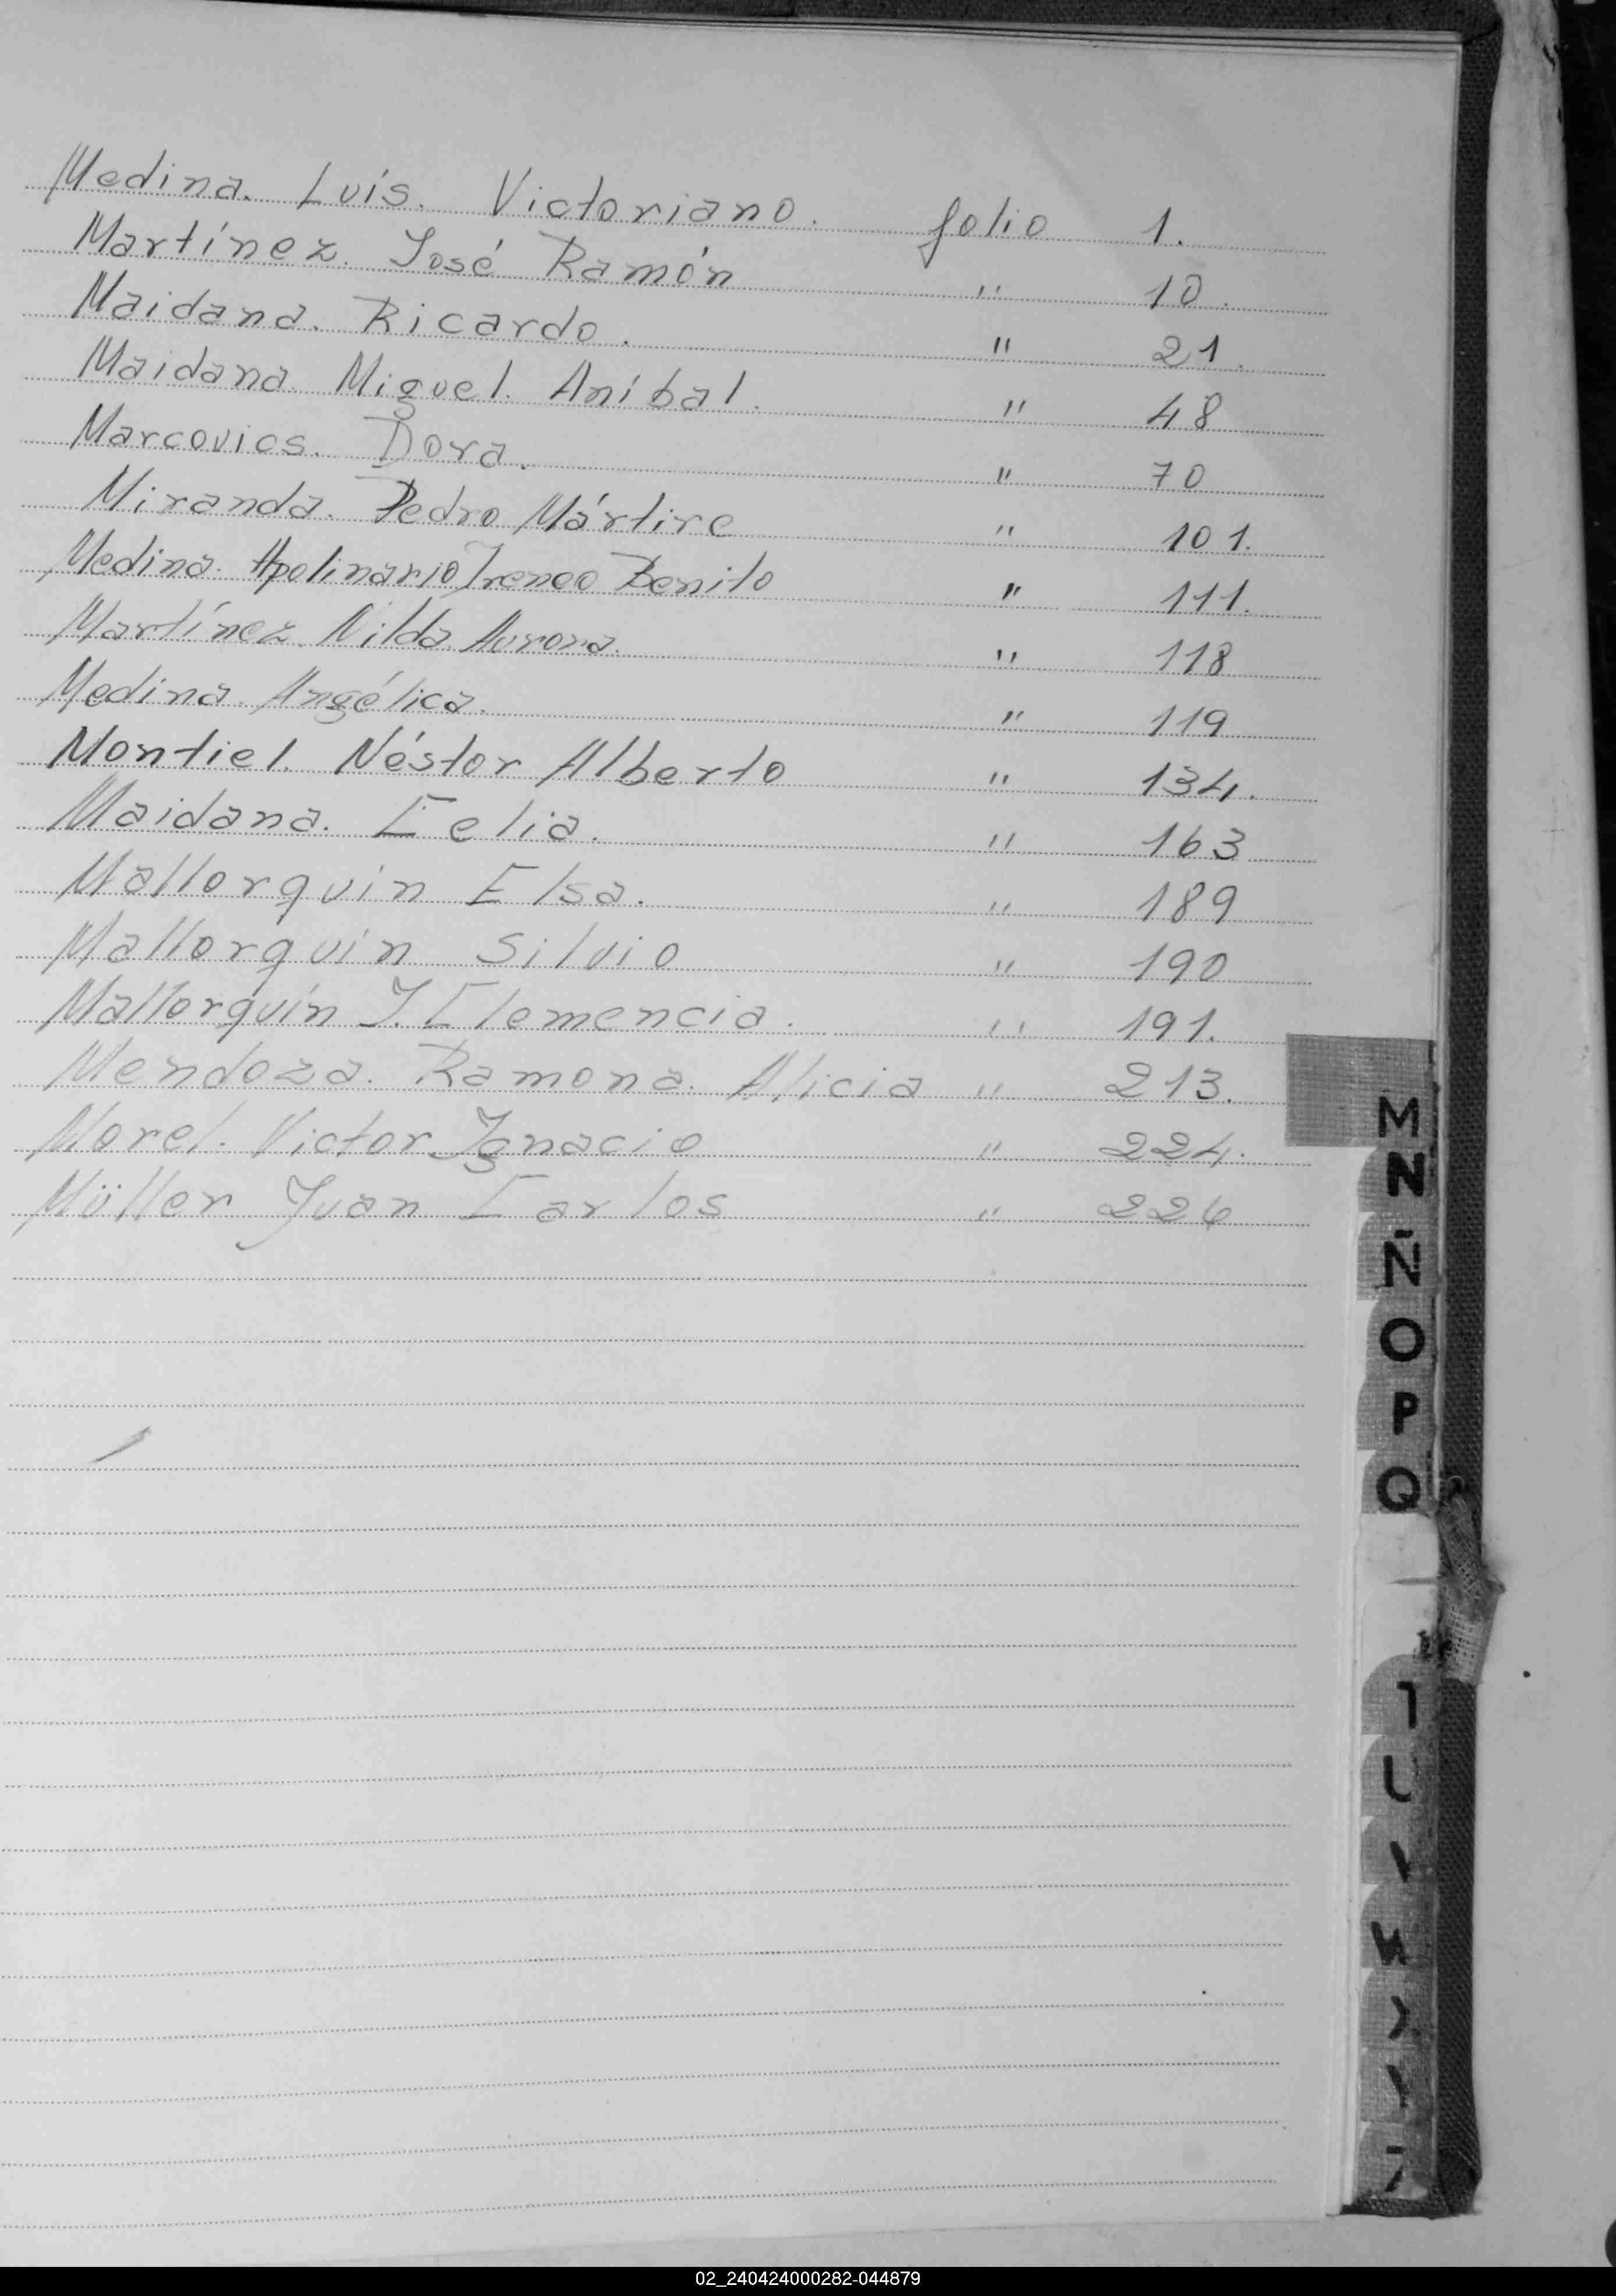 Medina. Luis. Victoriano. folio 1.
Martínez. José Ramón " 10.
Maidana. Ricardo. " 21.
Maidana Miguel. Aníbal. " 48
Marcovics. Dora. " 70
Miranda. Pedro Mártire " 101.
Medina. Apolinario Ireneo Benito " 111.
Martínez. Nilda Aurora. " 118
Medina. Angélica. " 119
Montiel. Néstor Alberto " 134.
Maidana. Celia. " 163
Mallorquin Elsa. " 189
Mallorquin Silvio " 190
Mallorquín J. Clemencia. " 191.
Mendoza. Ramona. Alicia " 213.
Morel. Victor Ignacio " 224.
Müller Juan Carlos " 226
M
N
Ñ
O
P
Q
02_240424000282-044879